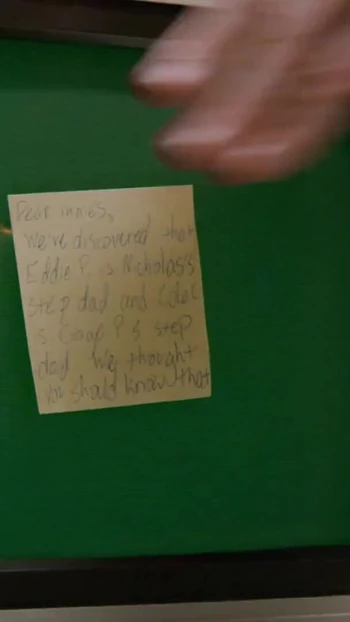 Dear innies,
We've discovered that
Eddie P. is Nicholas's
step dad and
is P's step
dad We thought
you should know that